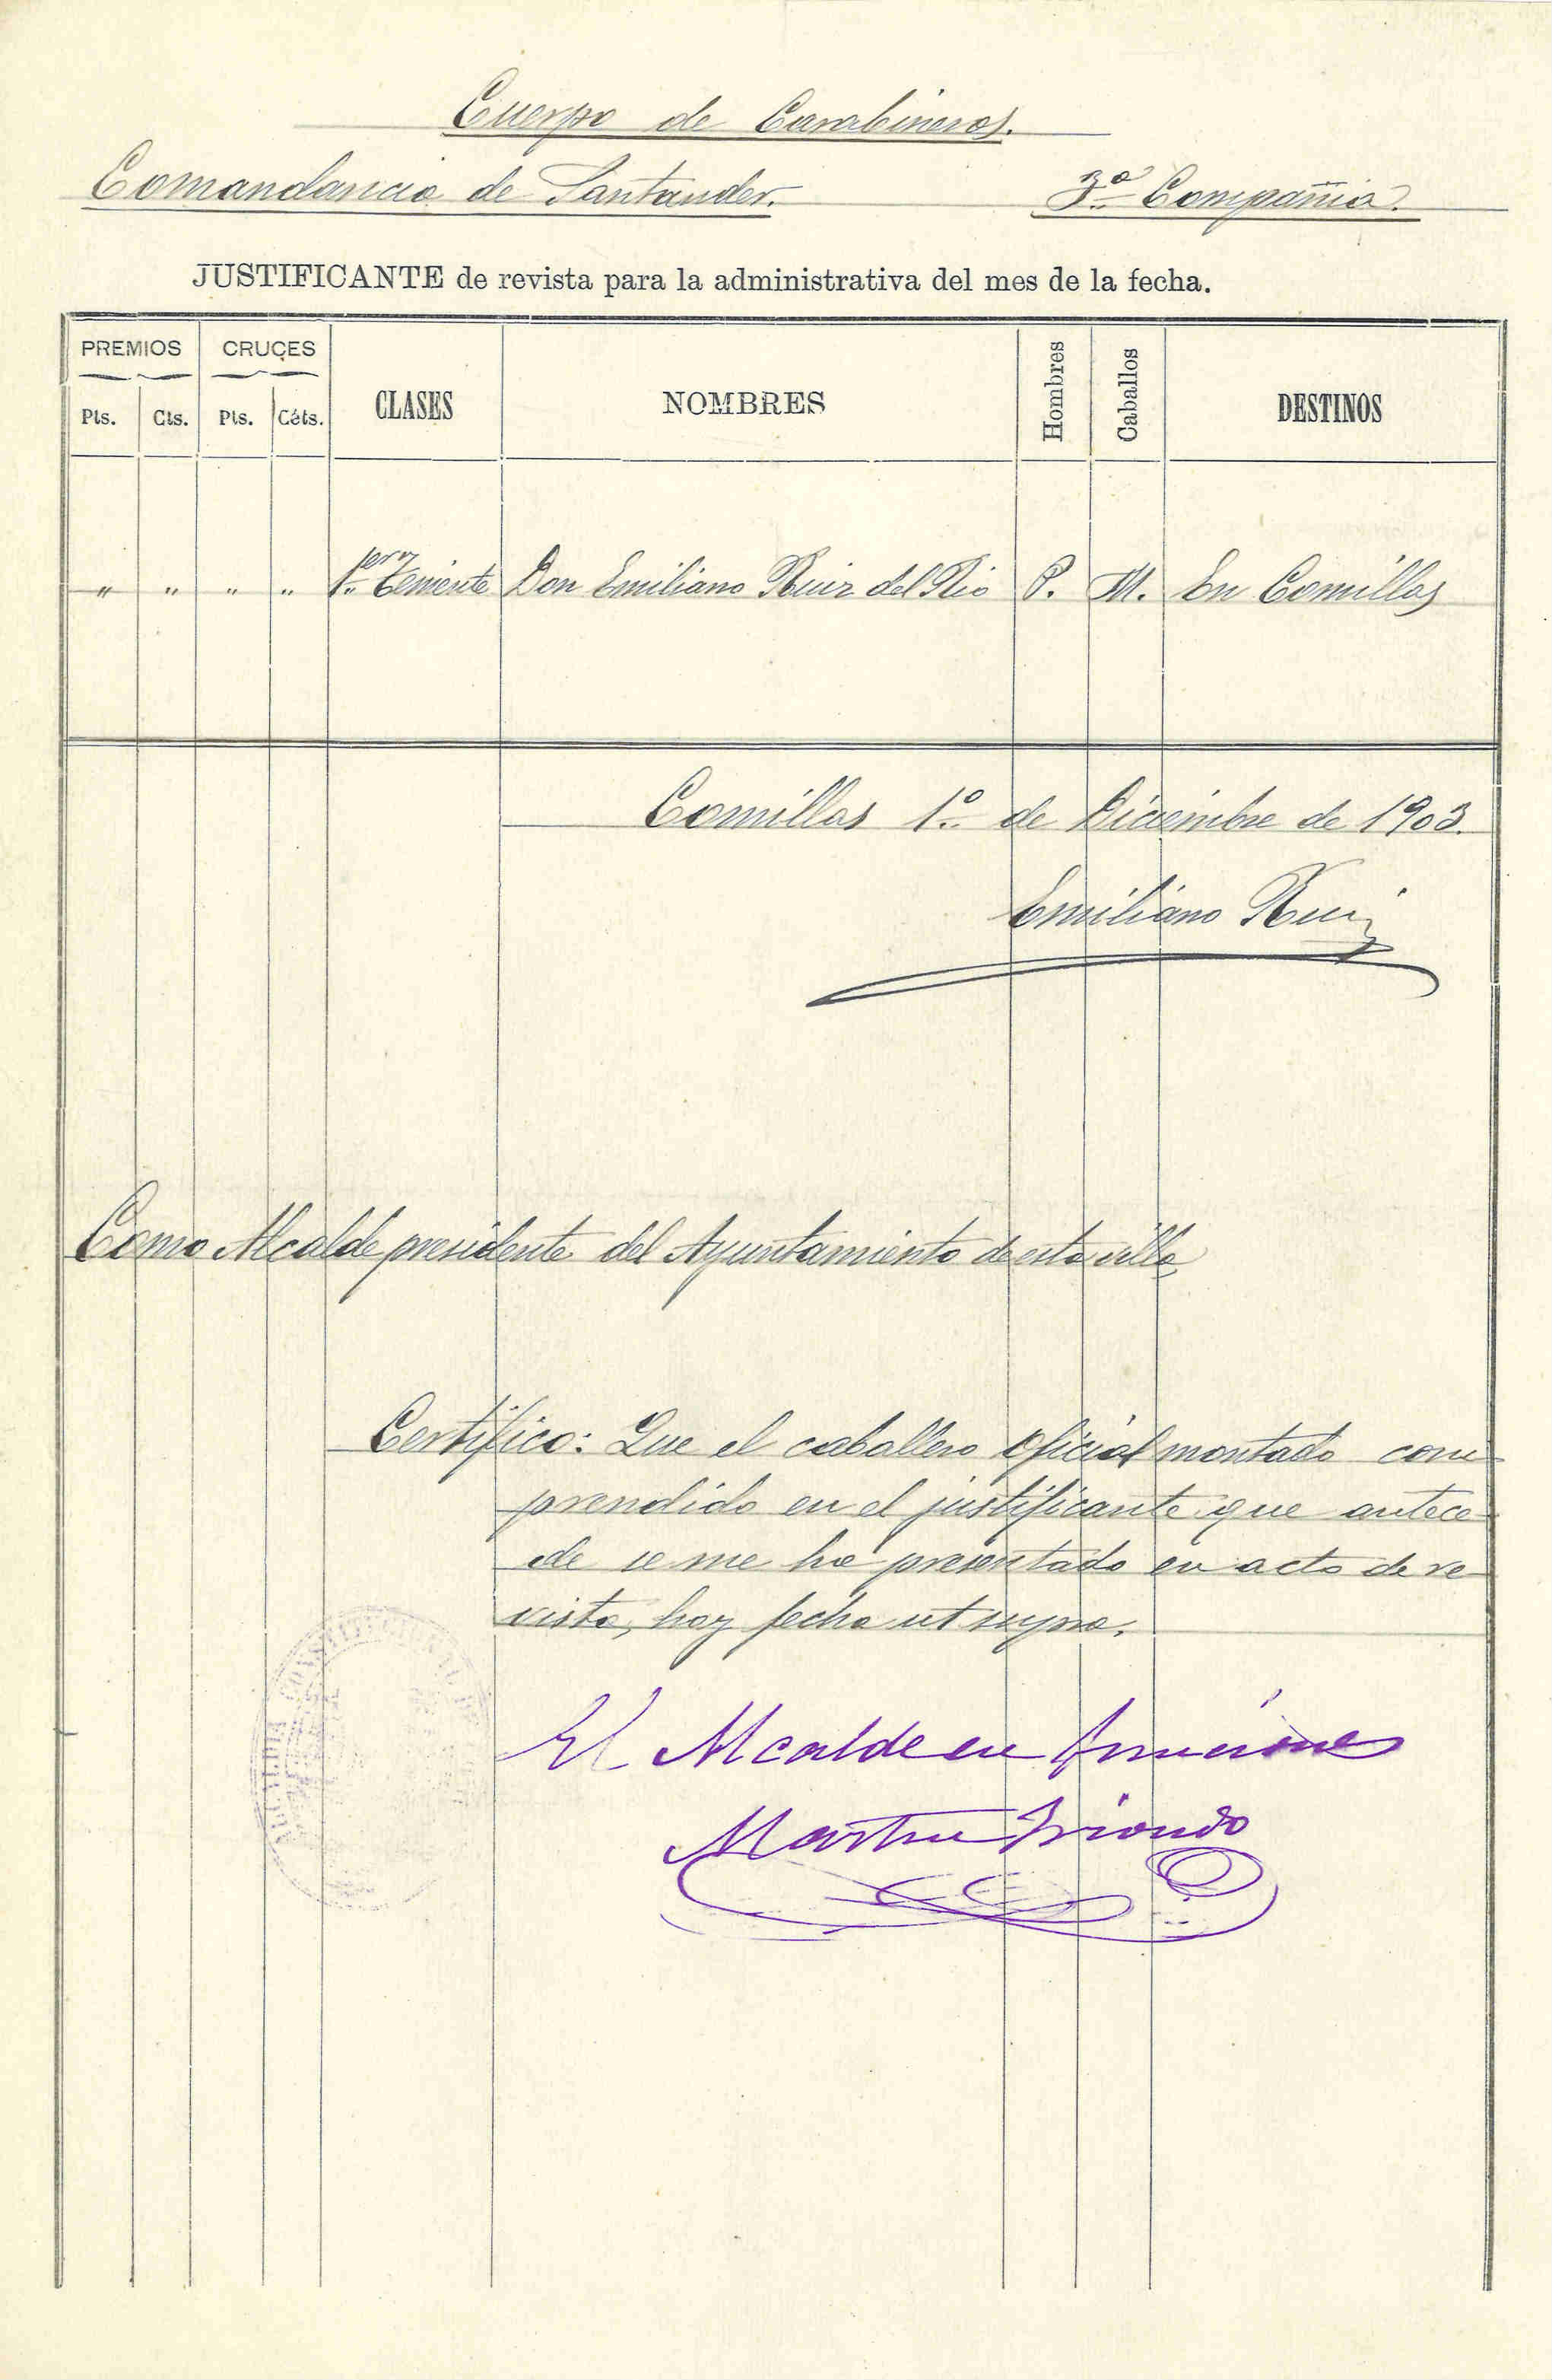 Cuerpo de Carabineros.
Comandancia de Santander. 3ª Compañia.
JUSTIFICANTE de revista para la administrativa del mes de la fecha.
PREMIOS CRUCES CLASES NOMBRES Hombres Caballos DESTINOS
Pts. Cts. Pts. Céts.
" " " " 1er Teniente Don Emiliano Ruiz del Rio P. M. En Comillas
Comillas 1º de Diciembre de 1903.
Emiliano Ruiz
Como Alcalde presidente del Ayuntamiento de esta villa,
Certifico: Que el caballero oficial montado com
prendido en el justificante que antece
de se me ha presentado en acto de re
vista, hoy fecha ut supra.
El Alcalde en funciones
Martin Iriondo